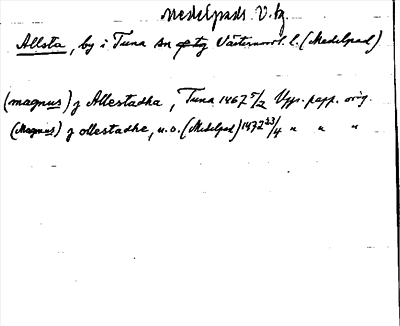 Medelpads V. tg
Allsta, by i Tuna sn Västernorrl. l. (Medelpad)
(magnus) j Allestadha, Tuna 1467 5/2 Upps. papp. orig.
(Magnus) j allestadhe, u.o. (Medelpad) 1472 23/4 " " "